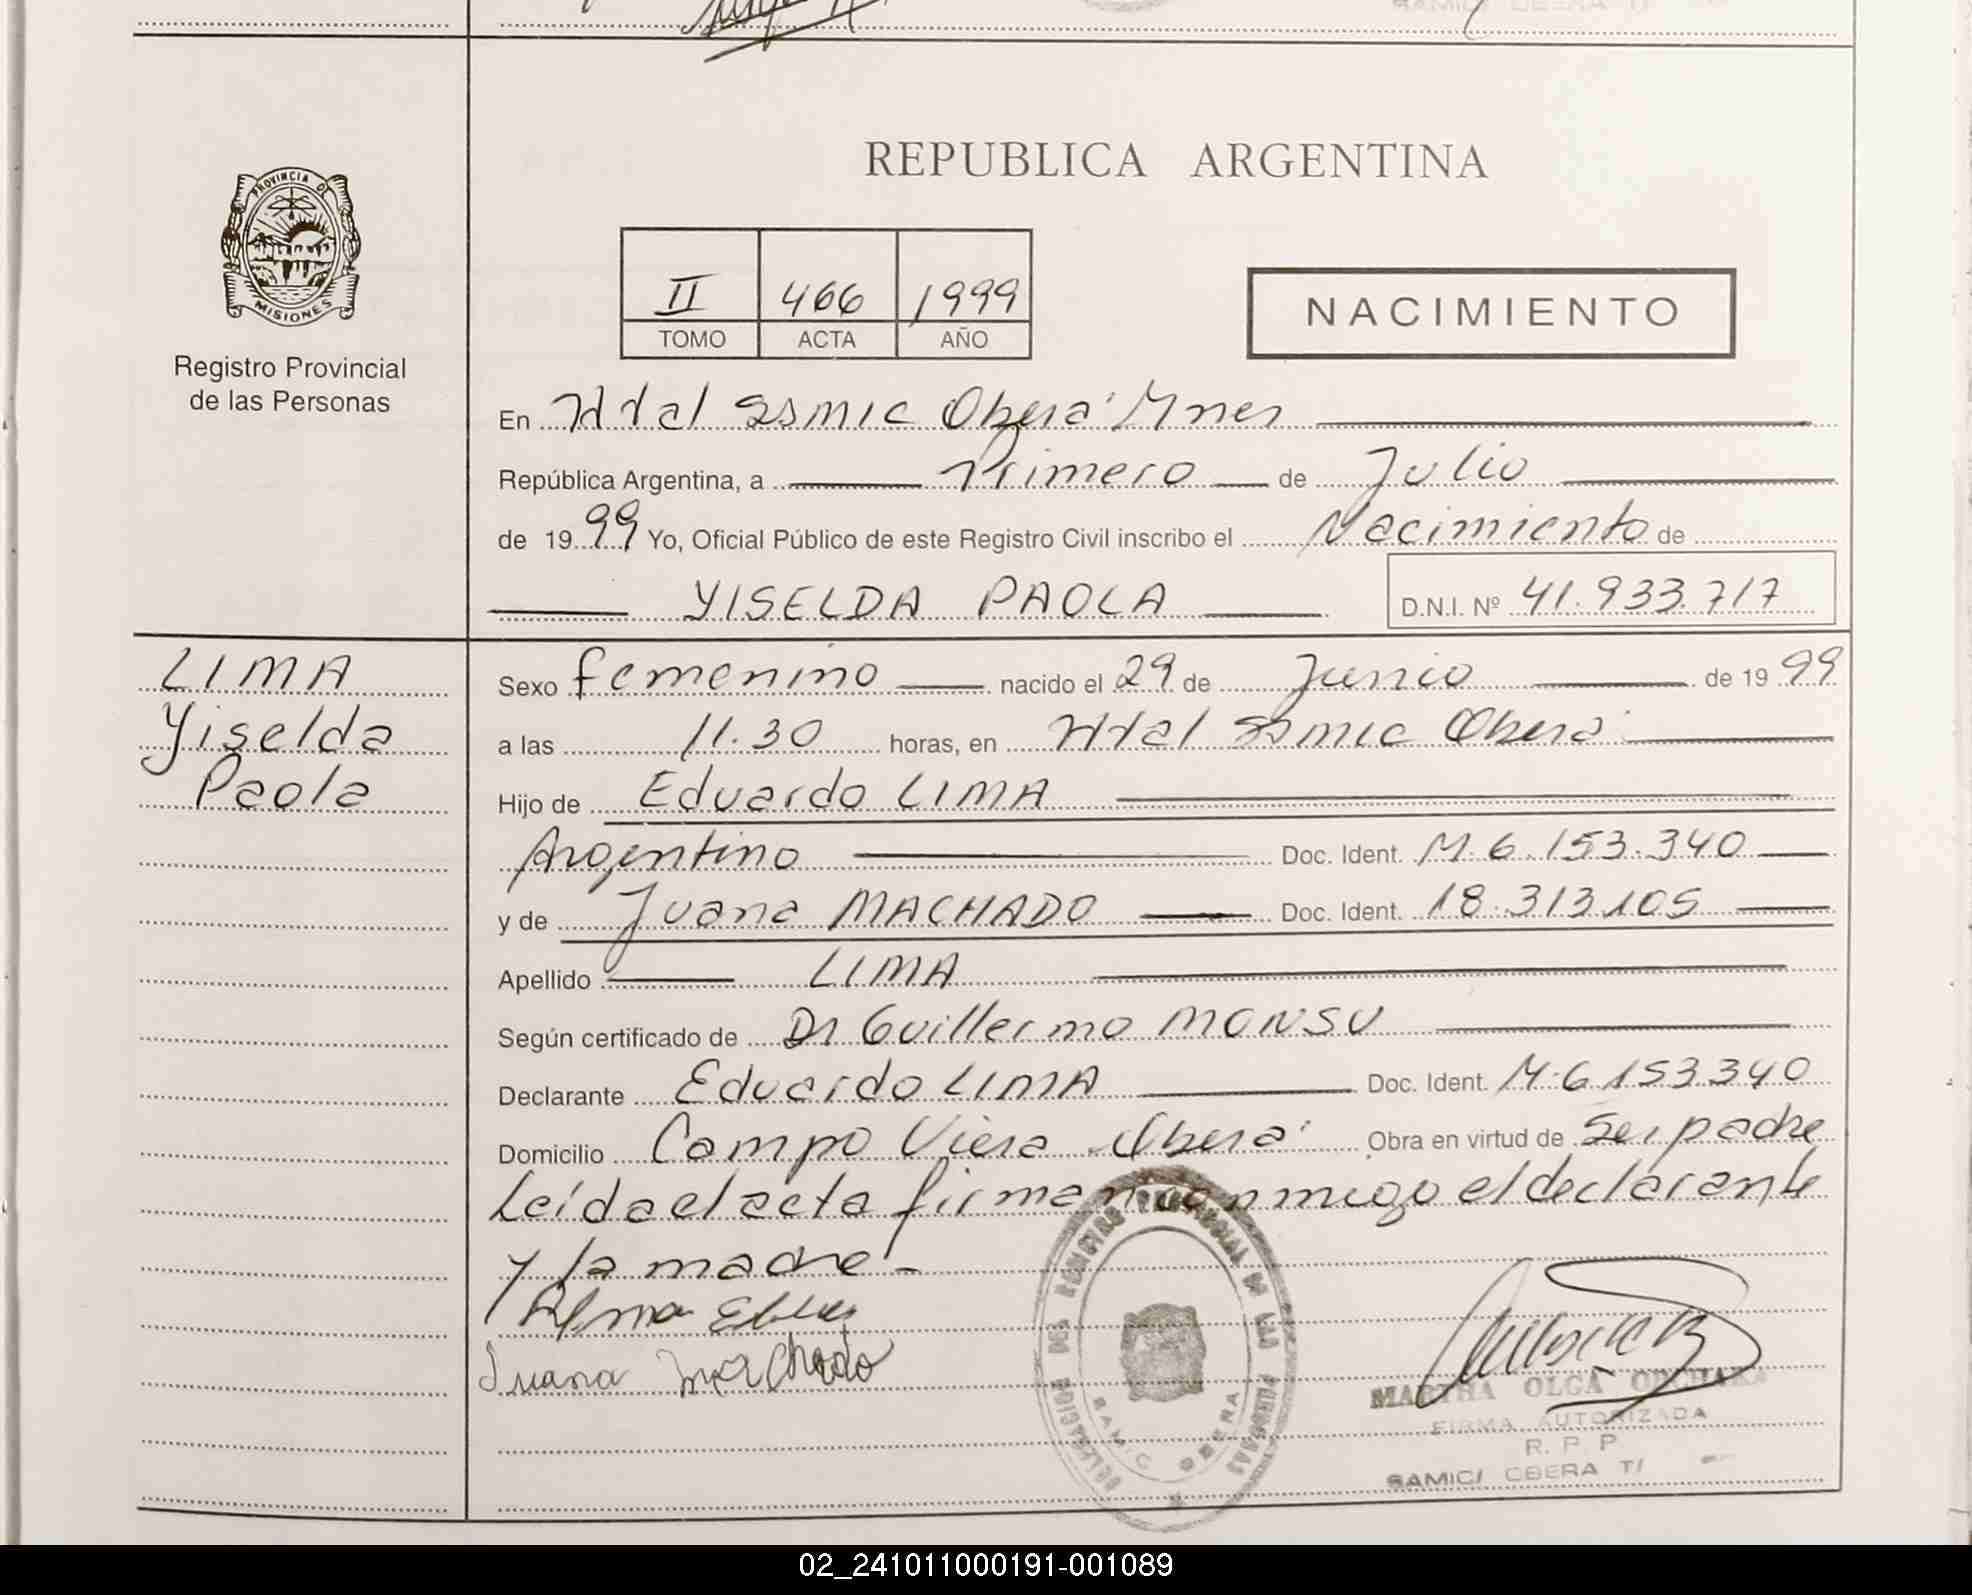 SAMIC/ OBERA T/
REPUBLICA ARGENTINA
PROVINCIA DE
MISIONES
Registro Provincial
de las Personas
II 466 1999
TOMO ACTA AÑO
NACIMIENTO
En Htal Samic Oberá Mnes
República Argentina, a Primero de Julio
de 1999 Yo, Oficial Público de este Registro Civil inscribo el Nacimiento de
YISELDA PAOLA D.N.I. Nº 41.933.717
LIMA
Yiselda
Paola
Sexo femenino nacido el 29 de Junio de 1999
a las 11.30 horas, en Htal Samic Oberá
Hijo de Eduardo LIMA
Argentino Doc. Ident. M.6.153.340
y de Juana MACHADO Doc. Ident. 18.313.105
Apellido LIMA
Según certificado de Dr Guillermo MONSU
Declarante Eduardo LIMA Doc. Ident. M.6.153.340
Domicilio Campo Viera Oberá Obra en virtud de Ser padre
Leída el acta firman conmigo el declarante
y la madre-
Juana Machado
DELEGACION DEL REGISTRO PROVINCIAL DE LAS PERSONAS
SAMIC OBERA
MARTHA OLGA
FIRMA AUTORIZADA
R. P. P
SAMIC/ OBERA T/
02_241011000191-001089